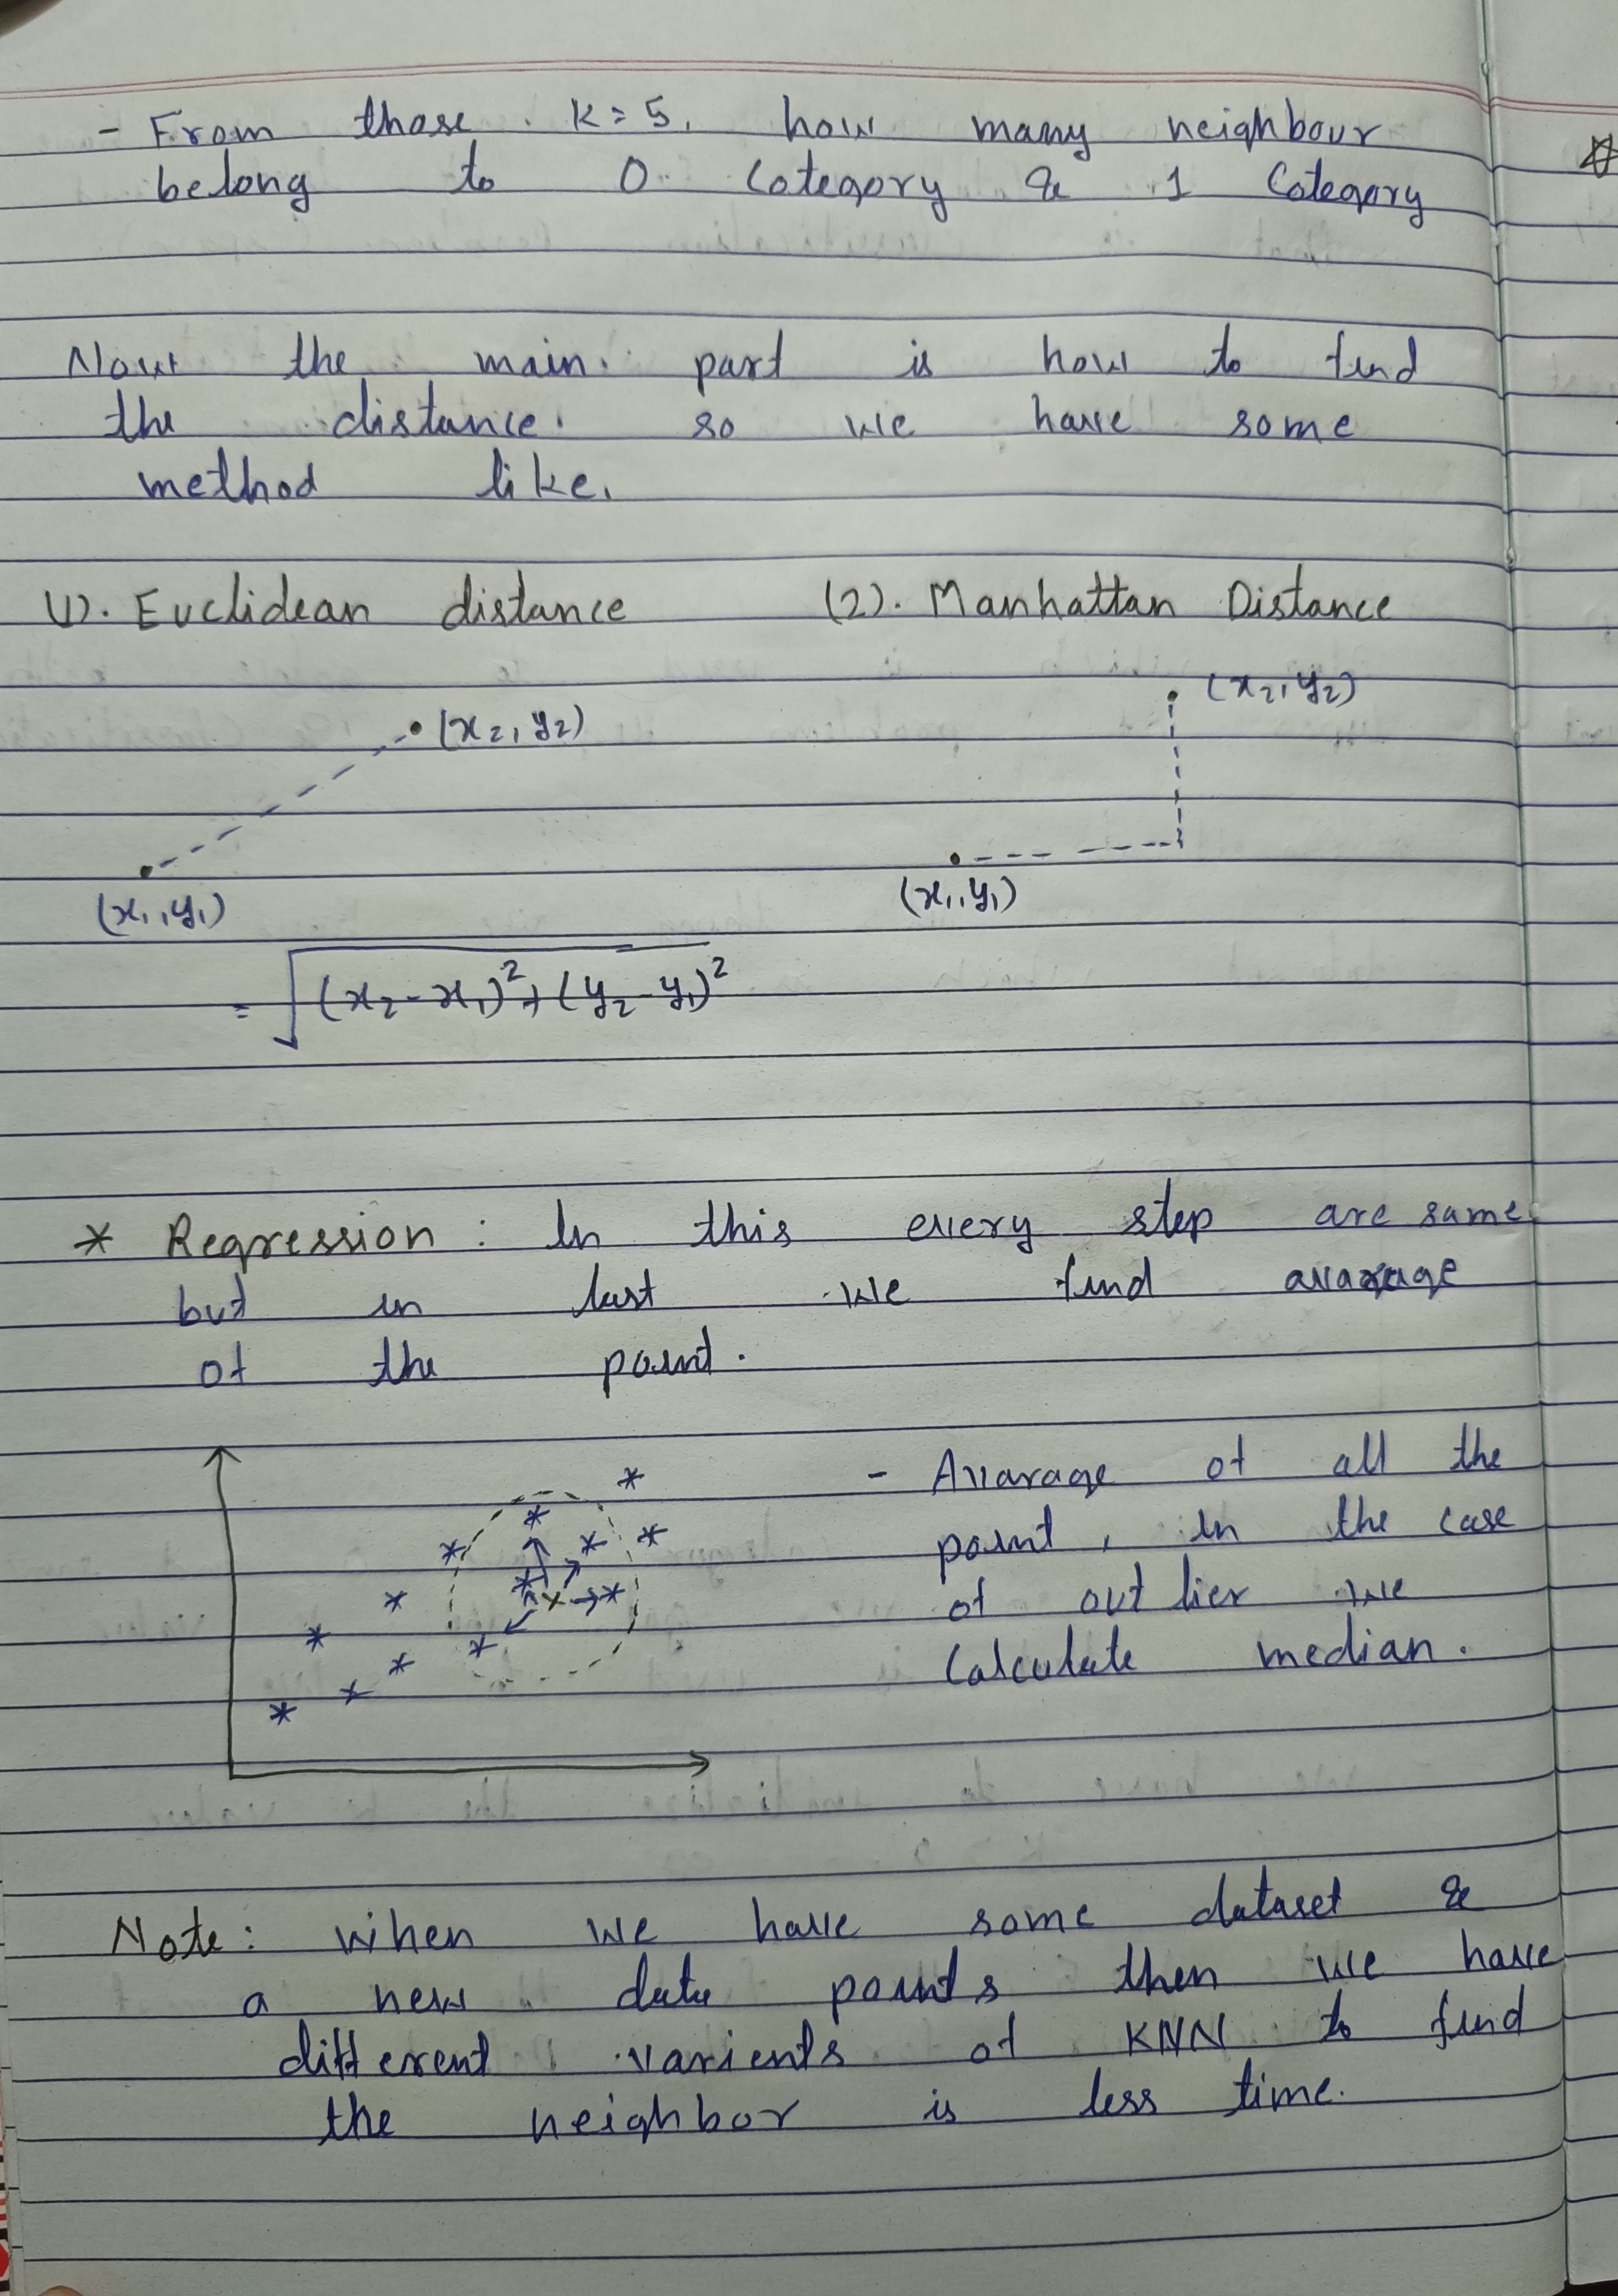 - From those . K = 5, how many neighbour
belong to 0 Category & 1 Category
Now the main part is how to find
the distance. so we have some
method like,
(1). Euclidean distance
(2). Manhattan Distance
(x2, y2)
(x1, y1)
(x2, y2)
(x1, y1)
= √(x2 - x1)² + (y2 - y1)²
* Regression : In this every step are same
but in last we find avarage
of the point.
- Avarage of all the
point, in the case
of outlier we
Calculate median.
Note: when we have some dataset &
a new data points then we have
different varients of KNN to find
the neighbor is less time.